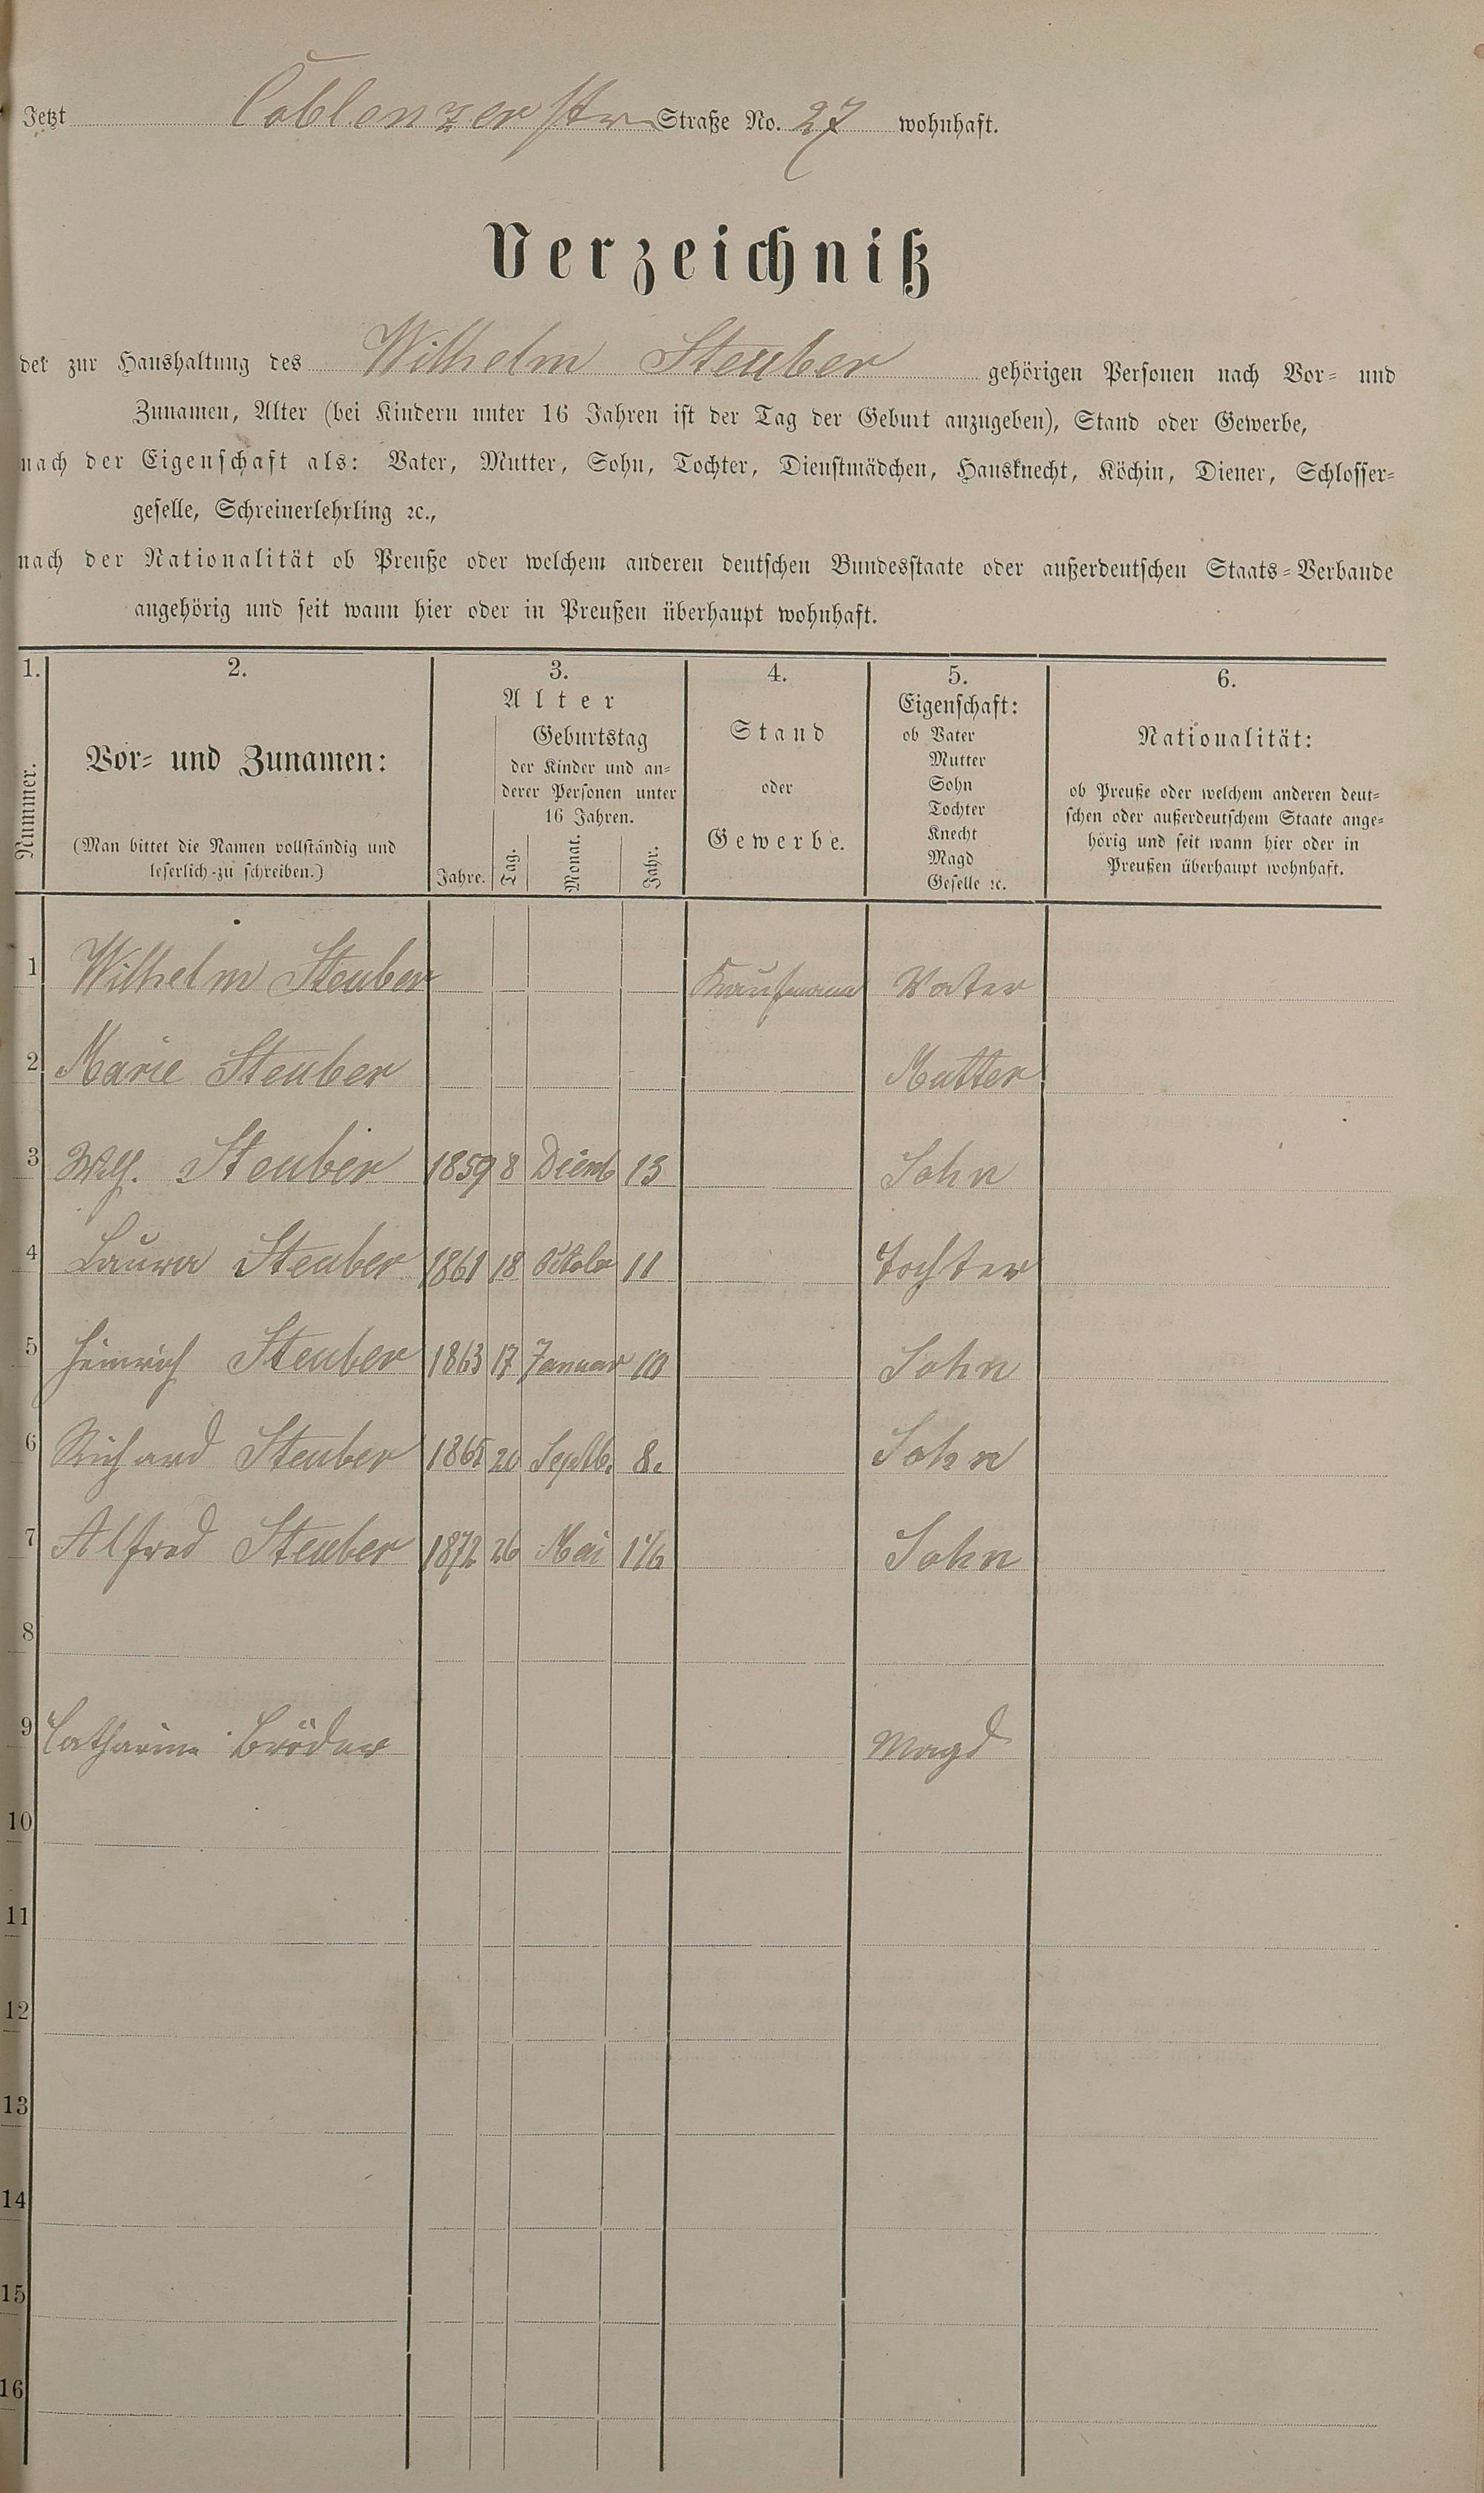 Jetzt Coblenzer str Straße No. 27 wohnhaft.
Verzeichniß
der zur Haushaltung des Wilhelm Steuber gehörigen Personen nach Vor- und
Zunamen, Alter (bei Kindern unter 16 Jahren ist der Tag der Geburt anzugeben), Stand oder Gewerbe,
nach der Eigenschaft als: Vater, Mutter, Sohn, Tochter, Dienstmädchen, Hausknecht, Köchin, Diener, Schlosser-
geselle, Schreinerlehrling ꝛc.,
nach der Nationalität ob Preuße oder welchem anderen deutschen Bundesstaate oder außerdeutschen Staats-Verbande
angehörig und seit wann hier oder in Preußen überhaupt wohnhaft.
1.
Nummer.
2.
Vor- und Zunamen:
(Man bittet die Namen vollständig und
leserlich zu schreiben.)
3.
Alter
Geburtstag
der Kinder und an-
derer Personen unter
16 Jahren.
Jahre. Tag. Monat. Jahr.
4.
Stand
oder
Gewerbe.
5.
Eigenschaft:
ob Vater
Mutter
Sohn
Tochter
Knecht
Magd
Geselle ꝛc.
6.
Nationalität:
ob Preuße oder welchem anderen deut-
schen oder außerdeutschem Staate ange-
hörig und seit wann hier oder in
Preußen überhaupt wohnhaft.
1 Wilhelm Steuber Kaufmann Vater
2 Marie Steuber Mutter
3 Steuber 1859 8 13 Sohn
4 Laura Steuber 1861 18 Octobr 11 Tochter
5 Heinrich Steuber 1863 17 Januar 10 Sohn
6 Richard Steuber 1865 20 Septb. 8. Sohn
7 Alfred Steuber 1872 26 Mai Sohn
8
9 Catharina Bröder Magd
10
11
12
13
14
15
16